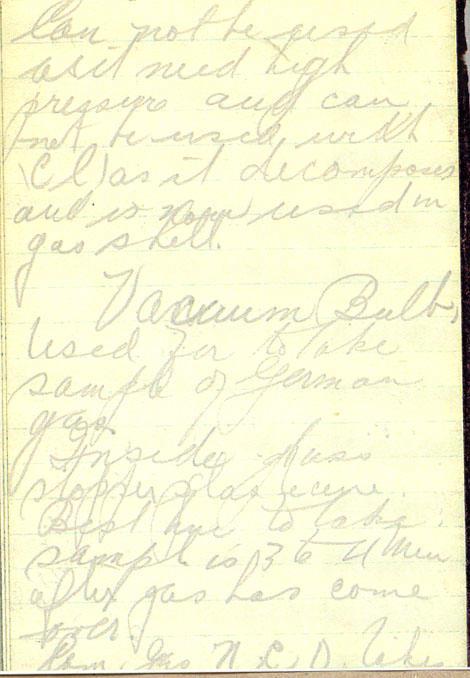 Can not be used
as it need high
pressure and can
not be used with
(Cl) as it decomposes
and is now used in
gas shell.
Vacuum Bulb,
Used for to take
sample of German
gas
Inside glass
stopper
Best time to take
sample is 3 to 4 Min
after gas has come
over.
Com. Gas N.C.O. takes